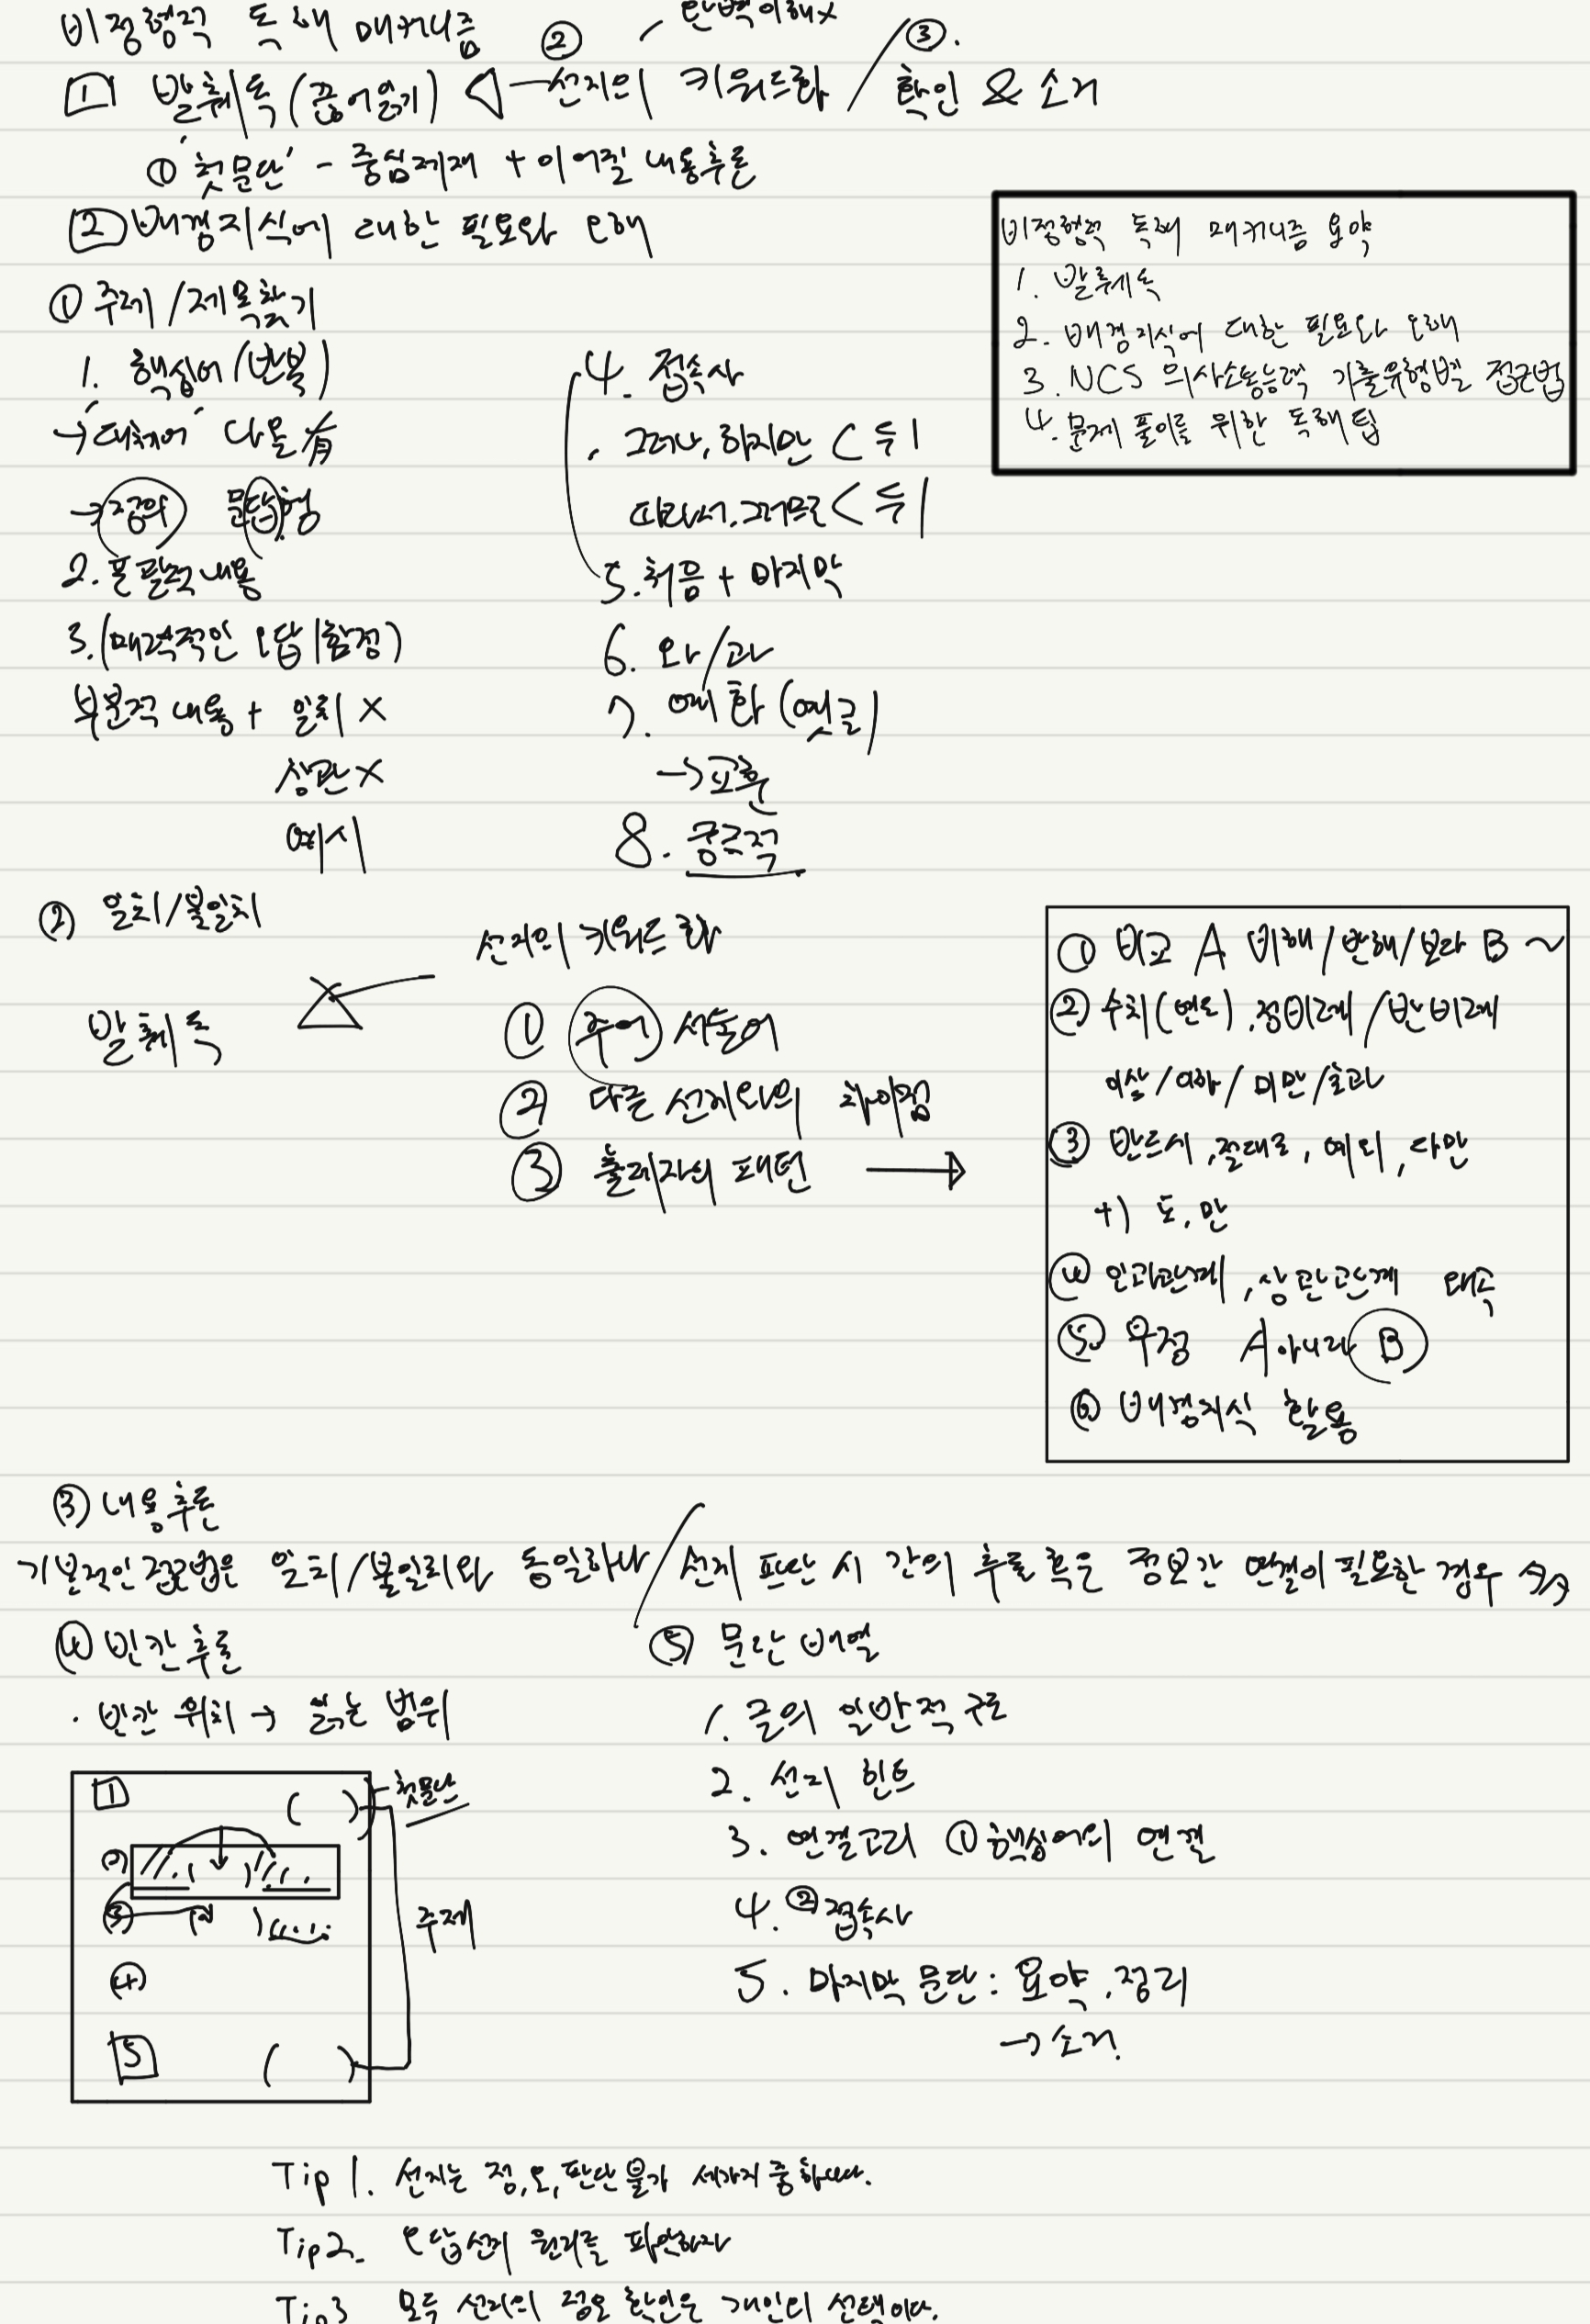 비정형적 독해 매커니즘
② 완벽이해x
③.
1 발췌독(끊어읽기) ◁ 선지의 키워드화 / 확인 & 소거
① '첫문단' - 중심제재 + 이어질 내용추론
2 배경지식에 대한 필요와 오해
비정형적 독해 매커니즘 요약
1. 발췌독
2. 배경지식에 대한 필요와 오해
3. NCS 의사소통능력 기출유형별 접근법
4. 문제 풀이를 위한 독해팁
① 주제/제목찾기
1. 핵심어(반복)
→ '대체어' 다올 有
→ 정의 문답형
2. 포괄적 내용
3. (매력적인 오답|함정)
부분적 내용 + 일치 X
상관 X
예시
4. 접속사
. 그러나, 하지만 < 뒤
따라서, 그러므로 < 뒤
5. 처음 + 마지막
6. 와/과
7. 예화(옛글)
→ 교훈
8. 궁극적
② 일치/불일치
발췌독
선지의 키워드화
① 주어 서술어
② 다른 선지와의 차이점
③ 출제자의 패턴 →
① 비교 A 비해/반해/보다 B ~
② 수치(연도), 정비례/반비례
이상/이하/미만/초과
③ 반드시, 절대로, 예외, 다만
+) 도, 만
④ 인과관계, 상관관계 왜곡
⑤ 부정 A 아니라 B
⑥ 배경지식 활용
③ 내용추론
기본적인 접근법은 일치/불일치와 동일하나 / 선지 판단 시 간의 추론 혹은 정보간 연결이 필요한 경우 多
④ 빈칸추론
· 빈칸 위치 → 읽는 범위
1 ( ) 첫문단
② ( )
③ ( )
④
5 ( )
주제
⑤ 문단배열
1. 글의 일반적 구조
2. 선지 힌트
3. 연결고리 ① 핵심어의 연결
4. ② 접속사
5. 마지막 문단 : 요약, 정리
→ 소거.
Tip 1. 선지는 정, 오, 판단 불가 세가지 중 하나다.
Tip 2. 오답선지 원리를 파악하자
Tip 3 모두 선지의 정오 확인은 개인의 선택이다.